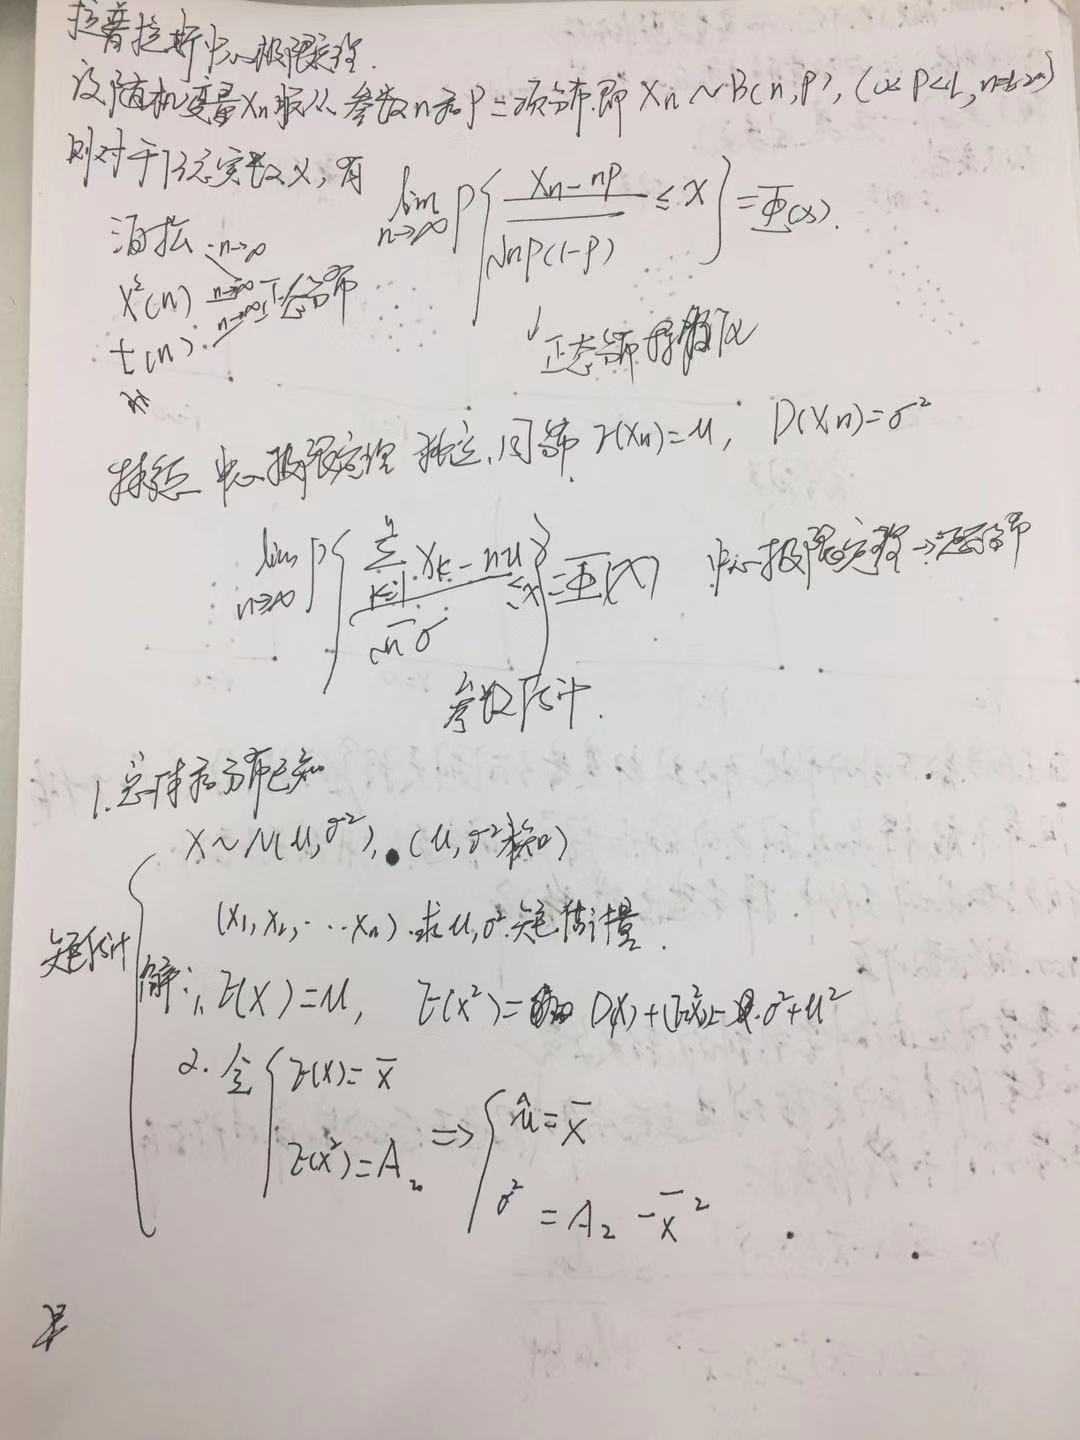 拉普拉斯中心极限定理.
设随机变量Xn服从参数n和P二项分布即 Xn ~ B(n, p), (0<P<1, n=1,2…)
则对于任意实数x, 有
lim n→∞ P{ (Xn - np) / √np(1-p) ≤ x } = Φ(x).
泊松 n→∞
X²(n) n→∞ 正态分布
t(n) n→∞
↓ 正态分布
中心极限定理 独立、同分布 E(Xn)=μ, D(Xn)=σ²
lim n→∞ P{ (Σ k=1 n Xk - nμ) / √n σ ≤ x } = Φ(x) 中心极限定理→正态分布
参数估计.
1. 总体 分布已知
X ~ N(μ, σ²), (μ, σ²未知)
(X1, X2, … Xn). 求μ, σ²矩估计量.
矩估计
解: 1. E(X)=μ, E(X²)= D(X)+ σ²+μ²
2. 令 { E(X)=X̄
E(X²)=A₂ ⇒ { μ̂=X̄
σ² = A₂ - X̄²